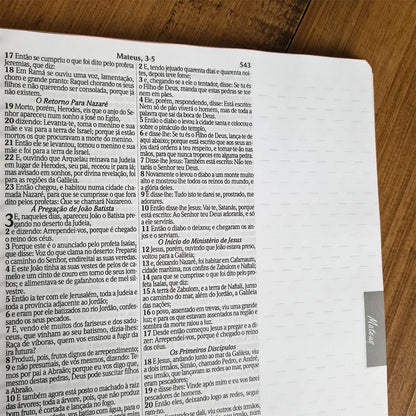 Mateus, 3-5
543
17 Então se cumpriu o que foi dito pelo profeta
Jeremias, que diz:
18 Em Ramá se ouviu uma voz, lamentação,
choro e grande pranto: Raquel chorando os seus
filhos e não querendo ser consolada, porque já
não existem.
O Retorno Para Nazaré
19 Morto, porém, Herodes, eis que o anjo do Se-
nhor apareceu num sonho a José no Egito,
20 dizendo: Levanta-te, toma o menino e sua
mãe e vai para a terra de Israel; porque já estão
mortos os que procuravam a morte do menino.
21 Então ele se levantou, tomou o menino e sua
mãe e foi para a terra de Israel.
22 E, ouvindo que Arquelau reinava na Judeia
em lugar de Herodes, seu pai, receou ir para lá;
mas avisado em sonhos, por divina revelação, foi
para as regiões da Galileia.
23 Então chegou, e habitou numa cidade cha-
mada Nazaré, para que se cumprisse o que fora
dito pelos profetas: Que se chamará Nazareno.
A Pregação de João Batista
3 E, naqueles dias, apareceu João o Batista pre-
gando no deserto da Judeia,
2 e dizendo: Arrependei-vos, porque é chegado
o reino dos céus.
3 Porque este é o anunciado pelo profeta Isaías,
que disse: Voz do que clama no deserto: Preparai
o caminho do Senhor, endireitai as suas veredas.
4 E este João tinha as suas vestes de pelos de ca-
melo e um cinto de couro em torno de seus lom-
bos; e alimentava-se de gafanhotos e de mel sil-
vestre.
5 Então ia ter com ele Jerusalém, toda a Judeia e
toda a província adjacente ao Jordão;
6 e eram por ele batizados no rio Jordão, confes-
sando os seus pecados.
7 E, vendo ele muitos dos fariseus e dos sadu-
ceus, que vinham ao seu batismo, dizia-lhes:
Raça de víboras, quem vos ensinou a fugir da ira
futura?
8 Produzi, pois, frutos dignos de arrependimento;
9 e não presumais, de vós mesmos, dizendo: Te-
mos por pai a Abraão; porque eu vos digo que,
mesmo destas pedras, Deus pode suscitar filhos
a Abraão.
10 E também agora está posto o machado à raiz
das árvores; toda a árvore, pois, que não produz
bom fruto, é cortada e lançada no fogo.
2 E, tendo jejuado quarenta dias e quarenta noi-
tes, depois teve fome;
3 e, chegando-se a ele o tentador, disse: Se tu és
o Filho de Deus, manda que estas pedras se tor-
nem em pães.
4 Ele, porém, respondendo, disse: Está escrito:
Nem só de pão viverá o homem, mas de toda a
palavra que sai da boca de Deus.
5 Então o diabo o levou à cidade santa e colocou-o
sobre o pináculo do templo,
6 e disse-lhe: Se tu és o Filho de Deus, lança-te de
aqui abaixo; porque está escrito que aos seus an-
jos dará ordens a teu respeito, e tomar-te-ão nas
mãos, para que nunca tropeces em alguma pedra.
7 Disse-lhe Jesus: Também está escrito: Não ten-
tarás o Senhor teu Deus.
8 Novamente o levou o diabo a um monte muito
alto e mostrou-lhe todos os reinos do mundo, e
a glória deles.
9 E disse-lhe: Tudo isto te darei se, prostrado, me
adorares.
10 Então disse-lhe Jesus: Vai-te, Satanás, porque
está escrito: Ao Senhor teu Deus adorarás, e só
a ele servirás.
11 Então o diabo o deixou; e chegaram os an-
jos e o serviam.
O Início do Ministério de Jesus
12 Jesus, porém, ouvindo que João estava preso,
voltou para a Galileia;
13 e, deixando Nazaré, foi habitar em Cafarnaum,
cidade marítima, nos confins de Zabulom e Naftali;
14 para que se cumprisse o que foi dito pelo pro-
feta Isaías, que diz:
15 A terra de Zabulom, e a terra de Naftali, junto
ao caminho do mar, além do Jordão, a Galileia
das nações;
16 o povo, assentado em trevas, viu uma grande
luz; e para os que estavam assentados na região e
sombra da morte raiou a luz.
17 Desde então começou Jesus a pregar e a di-
zer: Arrependei-vos, porque é chegado o reino
dos céus.
Os Primeiros Discípulos
18 E Jesus, andando junto ao mar da Galileia, viu
a dois irmãos, Simão, chamado Pedro, e André,
seu irmão, que lançavam as redes ao mar, porque
eram pescadores;
19 e disse-lhes: Vinde após mim e eu vos farei
pescadores de homens.
20 Então eles, deixando logo as redes, segui-
ram-no.
Mateus